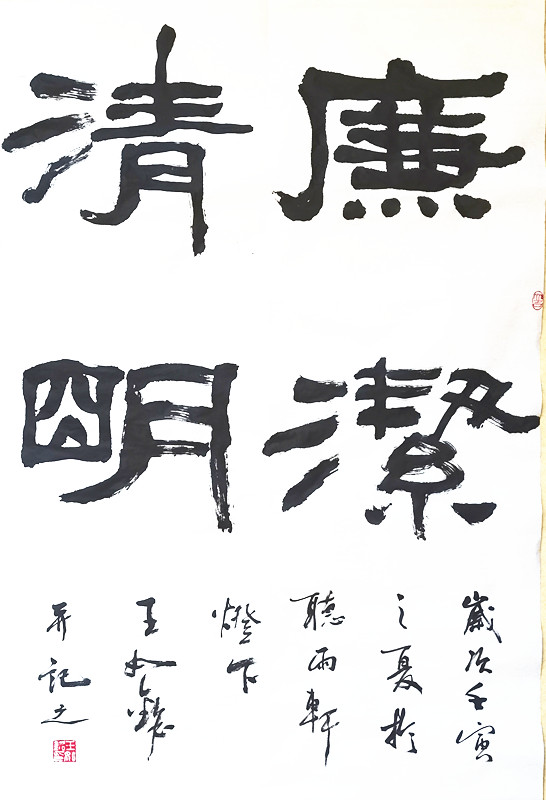 廉潔
清明
歲次壬寅
之夏於
聽雨軒
燈下
王
并記之